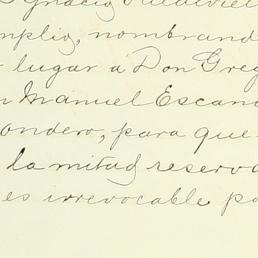 Ignacio Valdiviel
mplio, nombrand
lugar á Don Greg
n Manuel Escan
ondero, para que
la mitad reserva
es irrevocable po